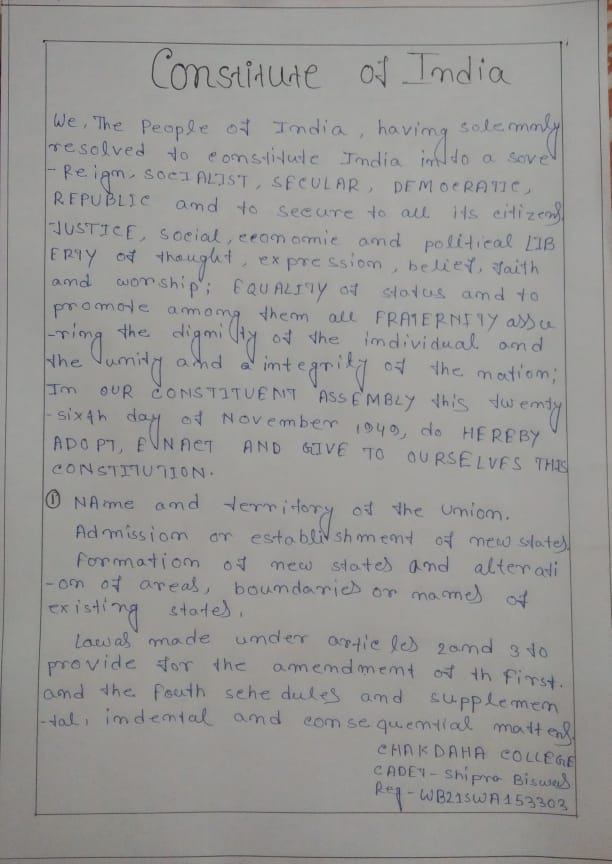 Constitute of India
We, The People of India, having solemnly
resolved to constitute India into a sove
-Reign, SOCIALIST, SECULAR, DEMOCRATIC,
REPUBLIC and to secure to all its citizens
JUSTICE, social, economic and political LIB
ERTY of thought, expression, belief, faith
and worship; EQUALITY of status and to
promote among them all FRATERNITY assu
-ring the dignity of the individual and
the unity and integrity of the nation;
In OUR CONSTITUENT ASSEMBLY this twenty
-sixth day of November 1949, do HEREBY
ADOPT, ENACT AND GIVE TO OURSELVES THIS
CONSTITUTION.
① NAme and territory of the union.
Admission or establishment of new states
formation of new states and alterati
-on of areas, boundaries or names of
existing states,
Lawas made under articles 2 and 3 to
provide for the amendment of th first.
and the fouth schedules and supplemen
-tal, indental and consequential matters.
CHAKDAHA COLLEGE
CADET - Shipra Biswas
Reg - WB21SWA153303